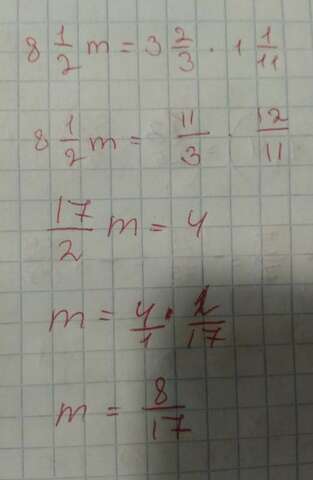 8 1/2 m = 3 2/3 · 1 1/11
8 1/2 m = 11/3 · 12/11
17/2 m = 4
m = 4/1 · 2/17
m = 8/17